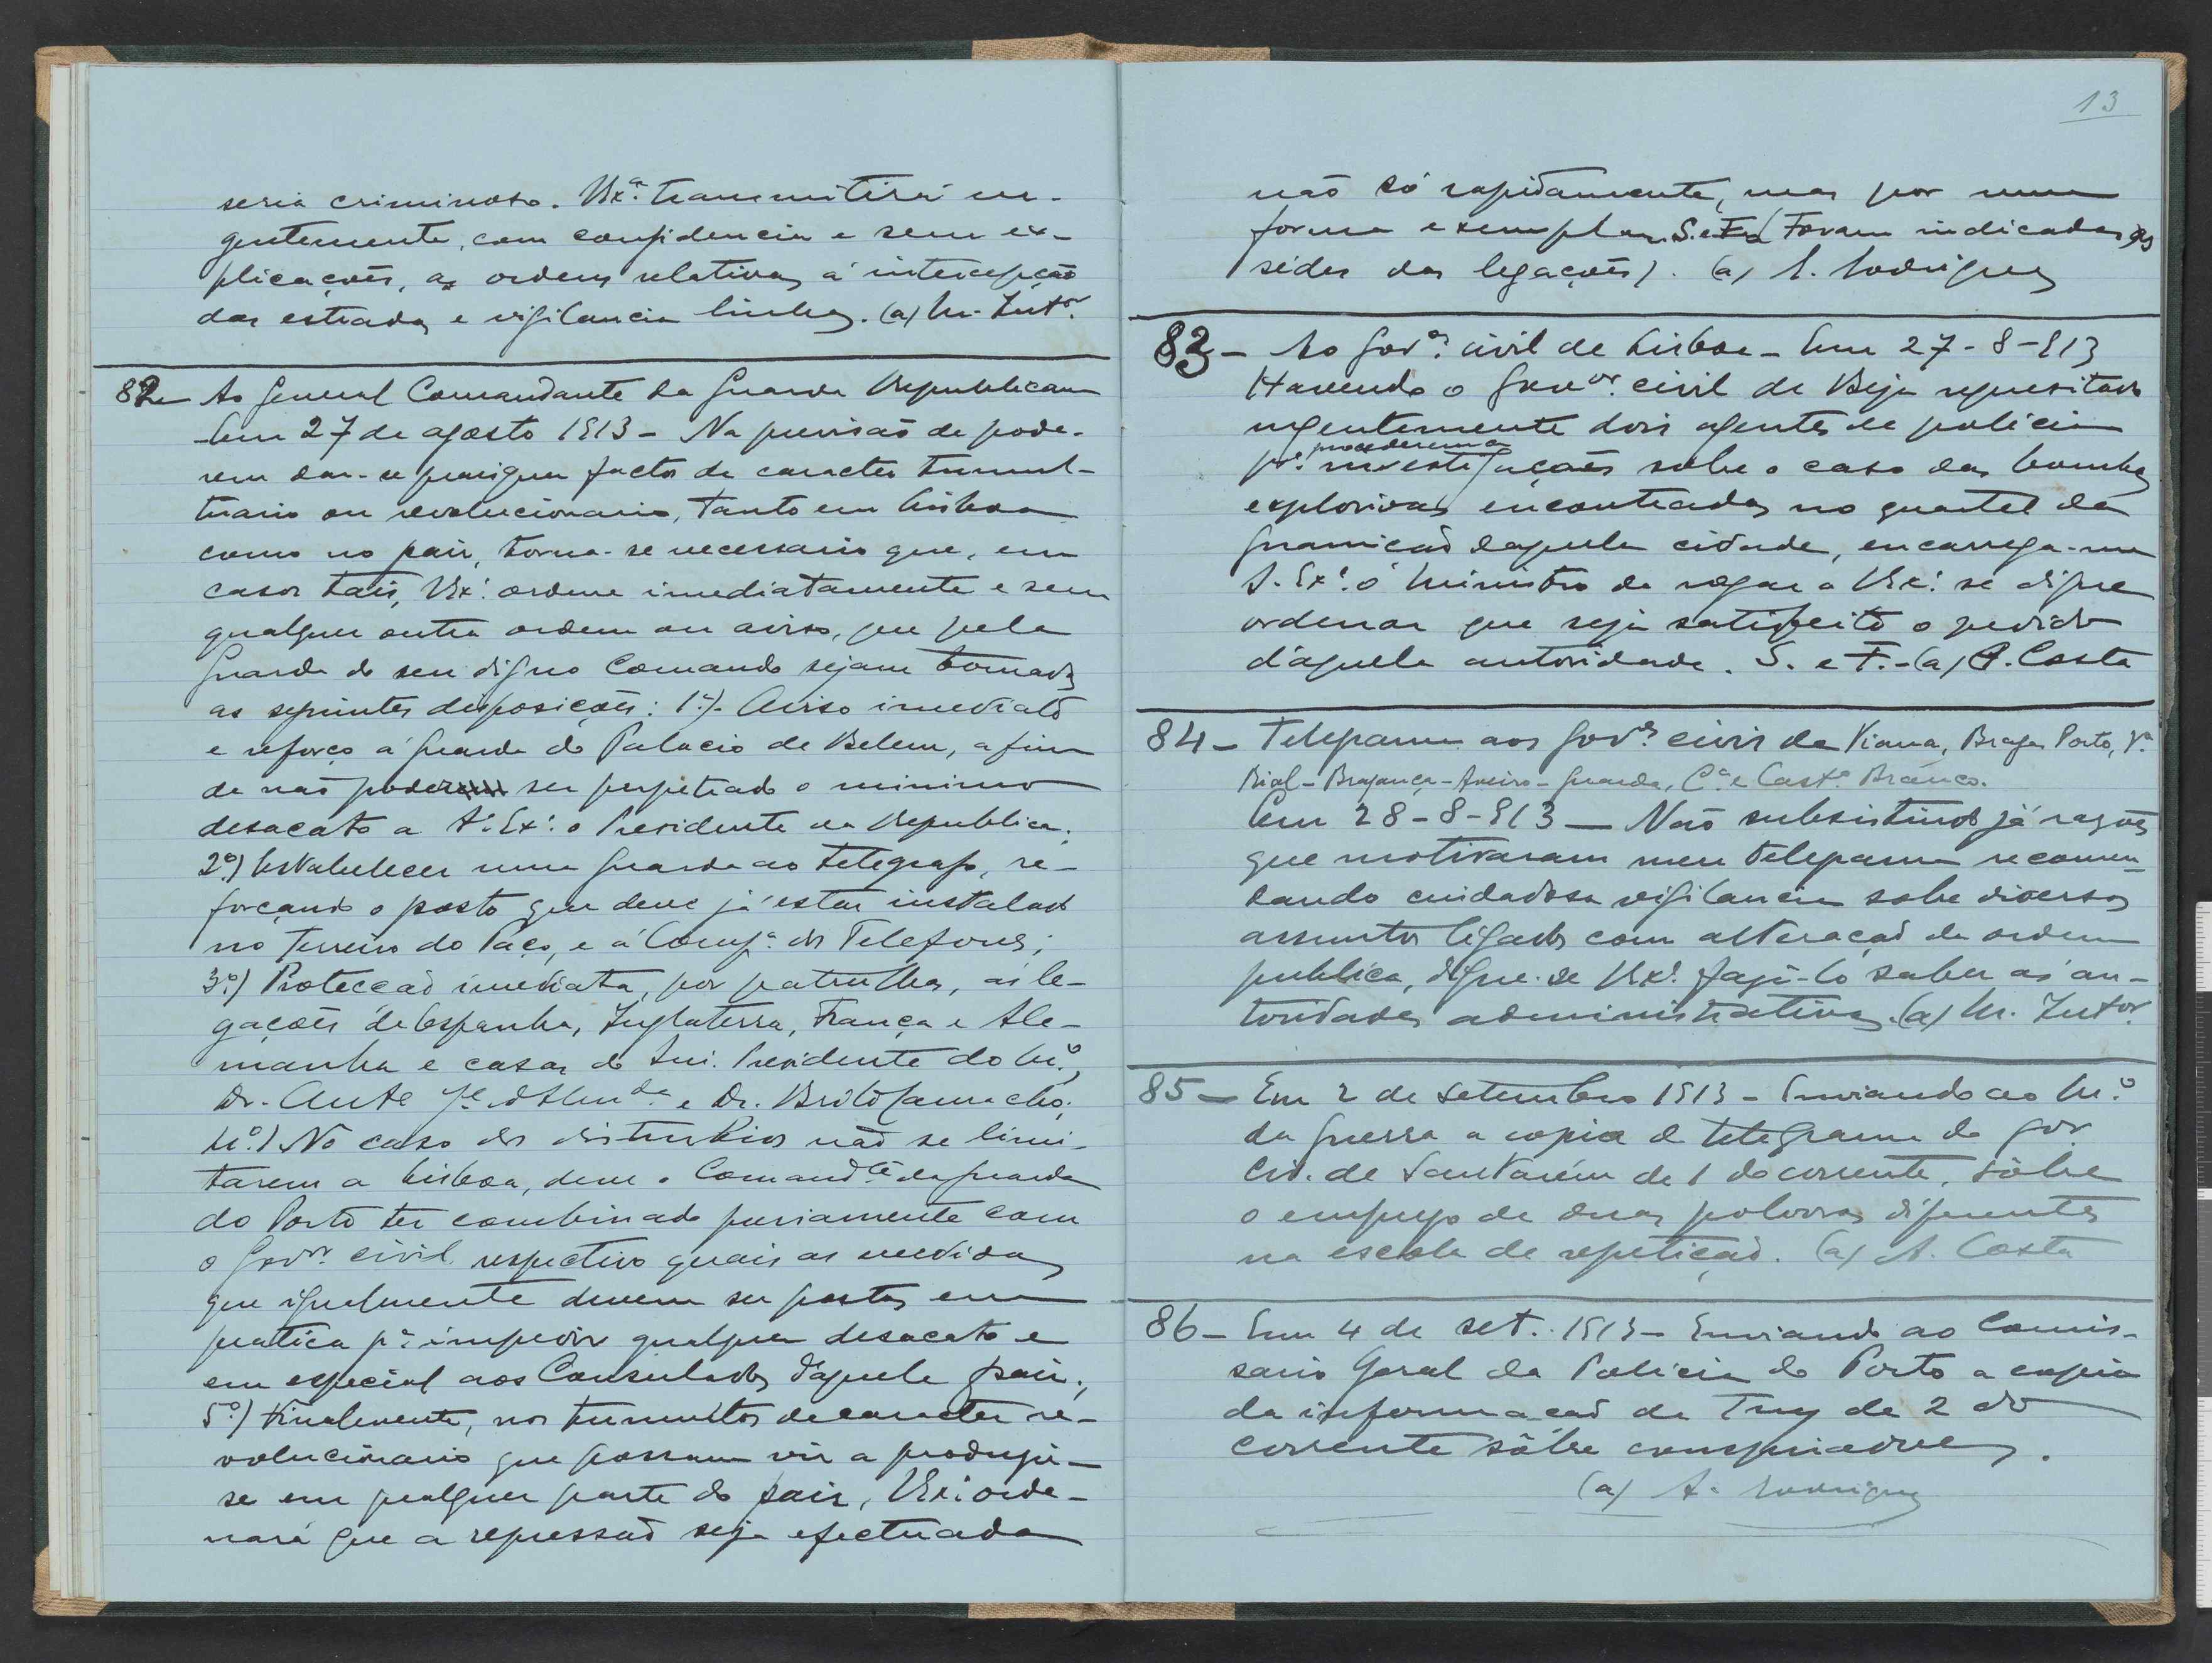 seria criminoso. V.Ex.ª transmitirá ur-
gentemente, com confidencia e sem ex-
plicações, as ordens relativas á intercepção
das estradas e vigilancia linhas. (a) M. Intor.
82 - Ao General Comandante da Guarda Republicana
Em 27 de agosto 1913 - Na previsão de pode-
rem dar-se quaisquer factos de caracter tumul-
tuario ou revolucionario, tanto em Lisboa
como no pais, torna-se necessario que, em
casos tais, V.Ex.ª ordene imediatamente e sem
qualquer outra ordem ou aviso, que pela
Guarda do seu digno Comando sejam tomadas
as seguintes disposições: 1.º)- Aviso imediato
e reforço á guarda do Palacio de Belem, a fim
de não poder ser perpetrado o minimo
desacato a S. Ex.ª o Presidente da Republica.
2.º) Estabelecer uma guarda ao telegrafo, re-
forçando o posto que deve já estar instalado
no Terreiro do Paço, e á Comp.ª dos Telefones;
3.º) Protecção imediata, por patrulhas, ás le-
gações de Espanha, Inglaterra, França e Ale-
manha e casas do Snr. Presidente do M.º,
Dr. Ant.º J.é d'Alm.da e Dr. Brito Camacho;
4.º) No caso dos disturbios não se limi-
tarem a Lisboa, deve o Comand.te da guarda
do Porto ter combinado previamente com
o Gov.or civil respectivo quais as medidas
que igualmente devem ser postas em
pratica p.ª impedir qualquer desacato e
em especial aos Consulados d'aquele pais;
5.º) Finalmente, nos tumultos de caracter re-
volucionario que possam vir a produzir-
se em qualquer parte do pais, V.Ex.ª orde-
nará que a repressão seja efectuada
13
não só rapidamente, mas por uma
forma exemplar. S. e F. (Foram indicadas as
sédes das legações). (a) A. Rodrigues
83 - Ao Gov.or civil de Lisboa - Em 27-8-913
Havendo o Gov.or civil de Beja requisitado
urgentemente dois agentes de policia
procederem a
p.ª investigações sobre o caso das bombas
explosivas encontradas no quartel da
guarnição daquela cidade, encarrega-me
S. Ex.ª o Ministro de rogar a V.Ex.ª se digne
ordenar que seja satisfeito o pedido
d'aquela autoridade. S. e F. - (a) A. Costa
84 - Telegrama aos Gov.es civis de Viana, Braga, Porto, V.ª
Rial - Bragança - Aveiro - Guarda, C.ª e Cast.º Branco.
Em 28-8-913 - Não subsistindo já razões
que motivaram meu telegrama recomen-
dando cuidadosa vigilancia sobre diversos
assuntos ligados com alteração da ordem
publica, digne-se V.Ex.ª fazê-lo saber ás au-
toridades administrativas. (a) M. Intor.
85 - Em 2 de Setembro 1913 - Enviando ao M.º
da Guerra a copia do telegrama do gov.
civ. de Santarém de 1 do corrente, sôbre
o emprego de duas polvoras diferentes
na escola de repetição. (a) A. Costa
86 - Em 4 de set. 1913 - Enviando ao Comis-
sario Geral da Policia do Porto a copia
da informação de Tuy de 2 do
corrente sôbre conspiradores.
(a) A. Rodrigues